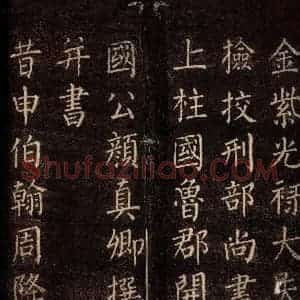 金紫光祿大夫
檢校刑部尚書
上柱國魯郡開
國公顏真卿撰
并書
昔申伯翰周降
Shufaziliao.com